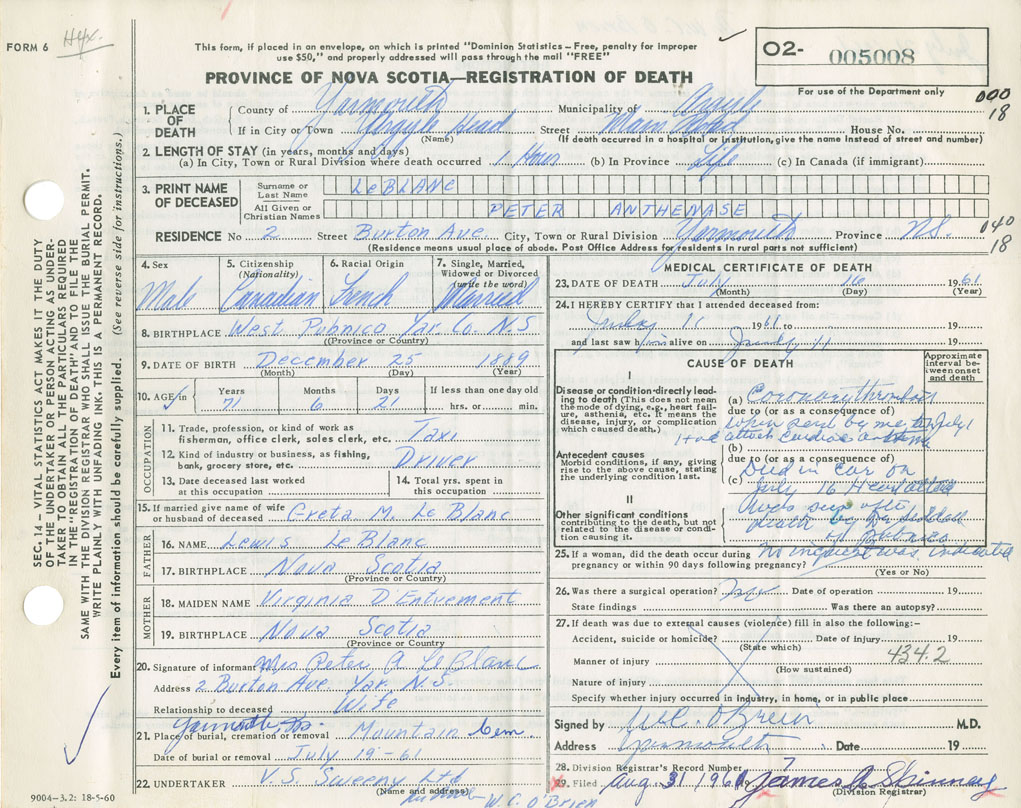 FORM 6 Hfx.
This form, if placed in an envelope, on which is printed "Dominion Statistics – Free, penalty for improper
use $50," and properly addressed will pass through the mail "FREE"
O2- 005008
PROVINCE OF NOVA SCOTIA—REGISTRATION OF DEATH
For use of the Department only
000
18
1. PLACE OF DEATH
County of Yarmouth Municipality of Argyle
If in City or Town Argyle Head Street Main Road House No.
(Name) (If death occurred in a hospital or institution, give the name instead of street and number)
2. LENGTH OF STAY (in years, months and days)
(a) In City, Town or Rural Division where death occurred 1 Hour (b) In Province Life (c) In Canada (if immigrant)
3. PRINT NAME OF DECEASED
Surname or Last Name LEBLANC
All Given or Christian Names PETER ANTHENASE
040
18
RESIDENCE No 2 Street Burton Ave. City, Town or Rural Division Yarmouth Province N.S.
(Residence means usual place of abode. Post Office Address for residents in rural parts not sufficient)
4. Sex Male
5. Citizenship (Nationality) Canadian
6. Racial Origin French
7. Single, Married, Widowed or Divorced (write the word) Married
8. BIRTHPLACE West Pubnico Yar. Co. N.S
(Province or Country)
9. DATE OF BIRTH December 25 1889
(Month) (Day) (Year)
10. AGE in
Years 71
Months 6
Days 21
If less than one day old
hrs. or min.
OCCUPATION
11. Trade, profession, or kind of work as
fisherman, office clerk, sales clerk, etc. Taxi
12. Kind of industry or business, as fishing,
bank, grocery store, etc. Driver
13. Date deceased last worked
at this occupation
14. Total yrs. spent in
this occupation
15. If married give name of wife
or husband of deceased Greta M. Le Blanc
FATHER
16. NAME Lewis Le Blanc
17. BIRTHPLACE Nova Scotia
(Province or Country)
MOTHER
18. MAIDEN NAME Virginia D Entremont
19. BIRTHPLACE Nova Scotia
(Province or Country)
20. Signature of informant Mrs Peter A Le Blanc
Address 2 Burton Ave Yar. N.S.
Relationship to deceased Wife
21. Place of burial, cremation or removal Mountain Cem
Date of burial or removal July 19-61
22. UNDERTAKER V.S. Sweeny Ltd
(Name and address)
W.C. O'Brien
MEDICAL CERTIFICATE OF DEATH
23. DATE OF DEATH July 16 1961
(Month) (Day) (Year)
24. I HEREBY CERTIFY that I attended deceased from:
1961 to 19
and last saw him alive on 19
CAUSE OF DEATH
Approximate interval between onset and death
I
Disease or condition directly leading to death (This does not mean the mode of dying, e.g., heart failure, asthenia, etc. It means the disease, injury, or complication which caused death.)
(a) Coronary thrombosis
due to (or as a consequence of)
when seen by me July 1
(b)
Antecedent causes
Morbid conditions, if any, giving rise to the above cause, stating the underlying condition last.
due to (or as a consequence of)
(c) Died in Car on
July 16 Heart attack
II
Other significant conditions
contributing to the death, but not related to the disease or condition causing it.
was seen after
death by Dr
Pubnico
25. If a woman, did the death occur during
pregnancy or within 90 days following pregnancy?
(Yes or No)
No inquest was indicated
26. Was there a surgical operation? Date of operation 19
State findings Was there an autopsy?
27. If death was due to external causes (violence) fill in also the following:–
Accident, suicide or homicide? Date of injury 19
(State which)
434.2
Manner of injury
(How sustained)
Nature of injury
Specify whether injury occurred in industry, in home, or in public place
Signed by W.C. O'Brien M.D.
Address Yarmouth Date 19
28. Division Registrar's Record Number 7
29. Filed Aug 31 1961 James A Skinner
(Division Registrar)
SEC. 14 – VITAL STATISTICS ACT MAKES IT THE DUTY
OF THE UNDERTAKER OR PERSON ACTING AS UNDERTAKER TO OBTAIN ALL THE PARTICULARS REQUIRED
IN THE "REGISTRATION OF DEATH" AND TO FILE THE
SAME WITH THE DIVISION REGISTRAR WHO SHALL ISSUE THE BURIAL PERMIT.
WRITE PLAINLY WITH UNFADING INK. THIS IS A PERMANENT RECORD.
Every item of information should be carefully supplied. (See reverse side for instructions.)
9004–3.2: 18-5-60